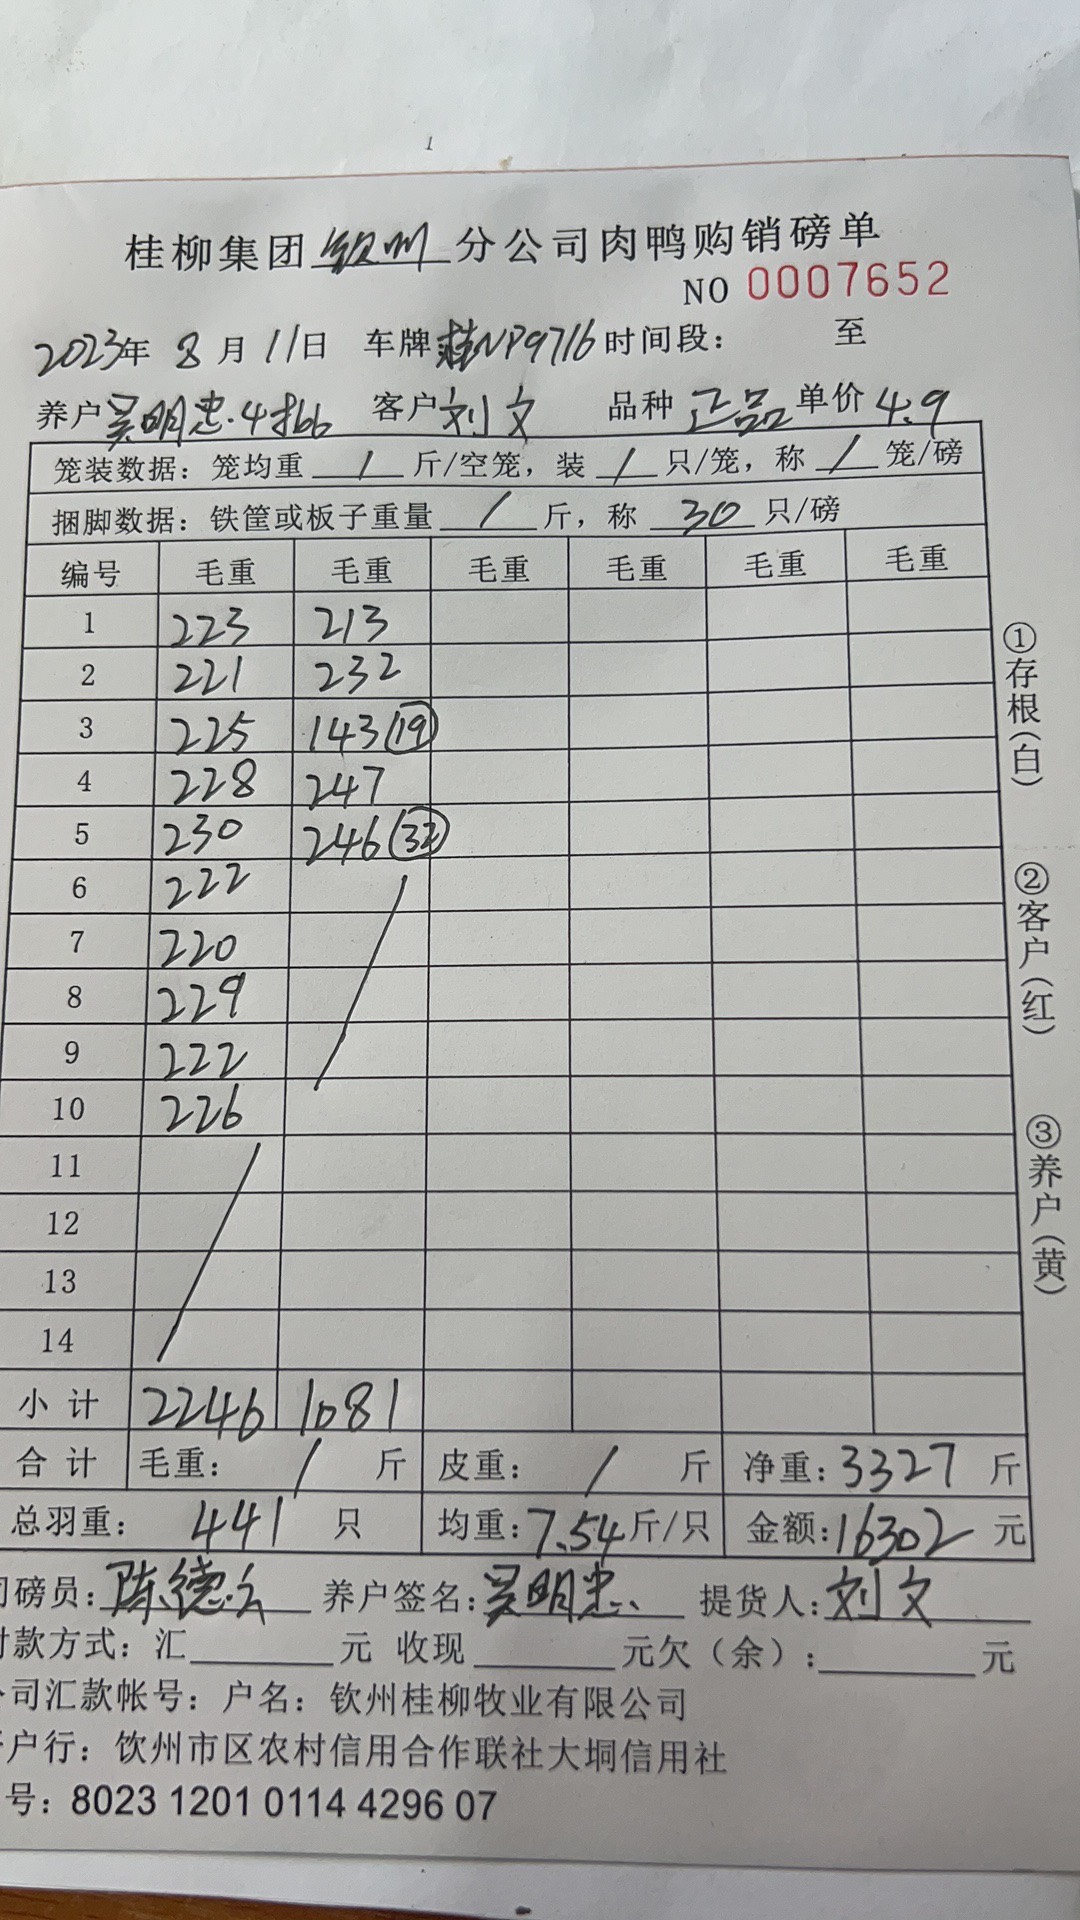 桂柳集团钦州分公司肉鸭购销磅单
NO 0007652
2023年 8月11日 车牌桂NP9716时间段: 至
养户吴明忠.4批 客户刘文 品种 正品 单价 4.9
笼装数据: 笼均重 / 斤/空笼, 装 / 只/笼, 称 / 笼/磅
捆脚数据: 铁筐或板子重量 / 斤, 称 30 只/磅
编号 毛重 毛重 毛重 毛重 毛重 毛重
1 223 213
2 221 232
3 225 143(19)
4 228 247
5 230 246(32)
6 222
7 220
8 229
9 222
10 226
11
12
13
14
小计 2246 1081
合计 毛重: / 斤 皮重: / 斤 净重: 3327 斤
总羽重: 441 只 均重: 7.54斤/只 金额:16302 元
磅员: 陈德云 养户签名: 吴明忠 提货人: 刘文
款方式: 汇 元 收现 元欠(余): 元
司汇款帐号: 户名: 钦州桂柳牧业有限公司
户行: 钦州市区农村信用合作联社大垌信用社
号: 8023 1201 0114 4296 07
①存根(白)
②客户(红)
③养户(黄)